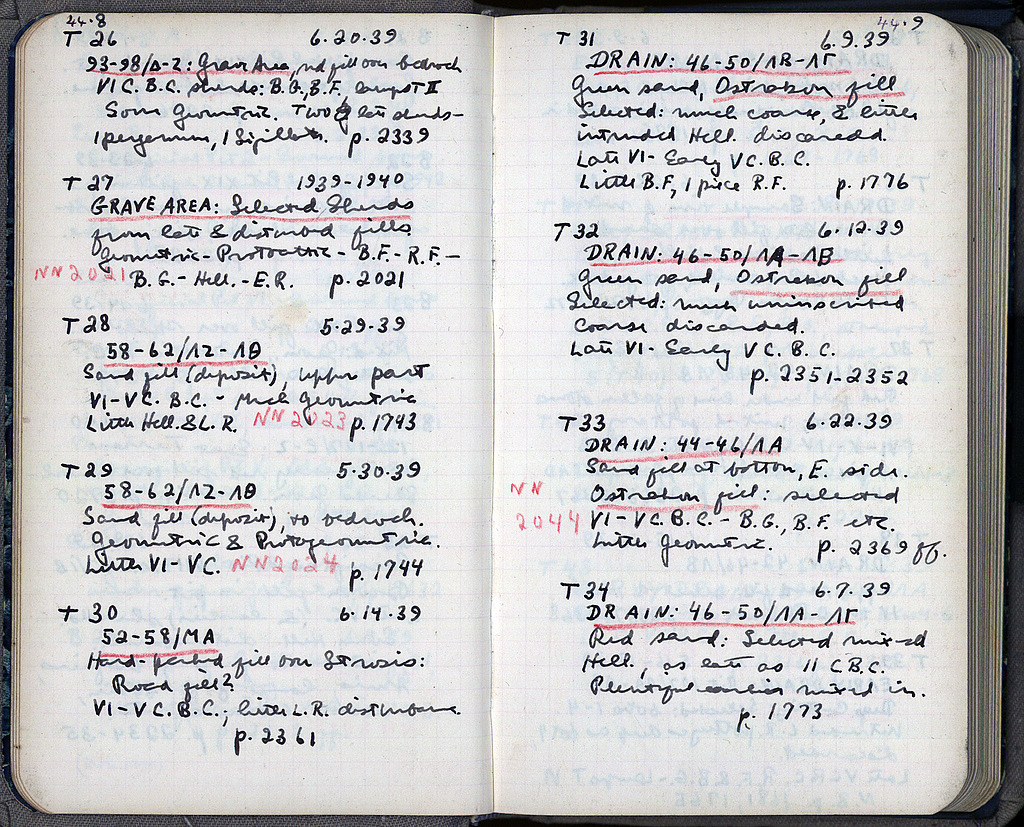 44.8
T 26 6.20.39
93-98/Δ-Z: Grave Area, red fill over bedrock
VI C. B.C. sherds: B.G., B.F. except II
Some Geometric. Two late sherds -
1 pergamum, 1 Sigillata. p. 2339
T 27 1939-1940
GRAVE AREA: Selected Sherds
from late & disturbed fills
Geometric - Protoattic - B.F. - R.F. -
NN 2021 B.G. - Hell. - E.R. p. 2021
T 28 5-29-39
58-62/ΛZ-ΛΘ
Sand fill (deposit), upper part
VI-V C. B.C. - Much Geometric
Little Hell. & L.R. NN 2023 p. 1743
T 29 5.30.39
58-62/ΛZ-ΛΘ
Sand fill (deposit), to bedrock.
Geometric & Protogeometric.
Little VI-V C. NN 2024 p. 1744
T 30 6.14.39
52-58/MA
Hard-packed fill over Strosis:
Road fill?
VI-V C. B.C.; little L.R. disturbance.
p. 2361
44.9
T 31 6.9.39
DRAIN: 46-50/ΛB-ΛΓ
Green sand, Ostrakon fill
Selected: much coarse, & little
intruded Hell. discarded.
Late VI - Early V C. B.C.
Little B.F., 1 piece R.F. p. 1776
T 32 6.12.39
DRAIN: 46-50/ΛA-ΛB
Green sand, Ostrakon fill
Selected: much uninscribed
coarse discarded.
Late VI - Early V C. B.C.
p. 2351-2352
T 33 6.22.39
DRAIN: 44-46/ΛA
Sand fill at bottom, E. side.
NN 2044
Ostrakon fill: selected
VI-V C. B.C. - B.G., B.F. etc.
Little Geometric. p. 2369 ff.
T 34 6.7.39
DRAIN: 46-50/ΛA-ΛΓ
Red sand: Selected mixed
Hell., as late as II C B.C.
Plentiful earlier mixed in.
p. 1773